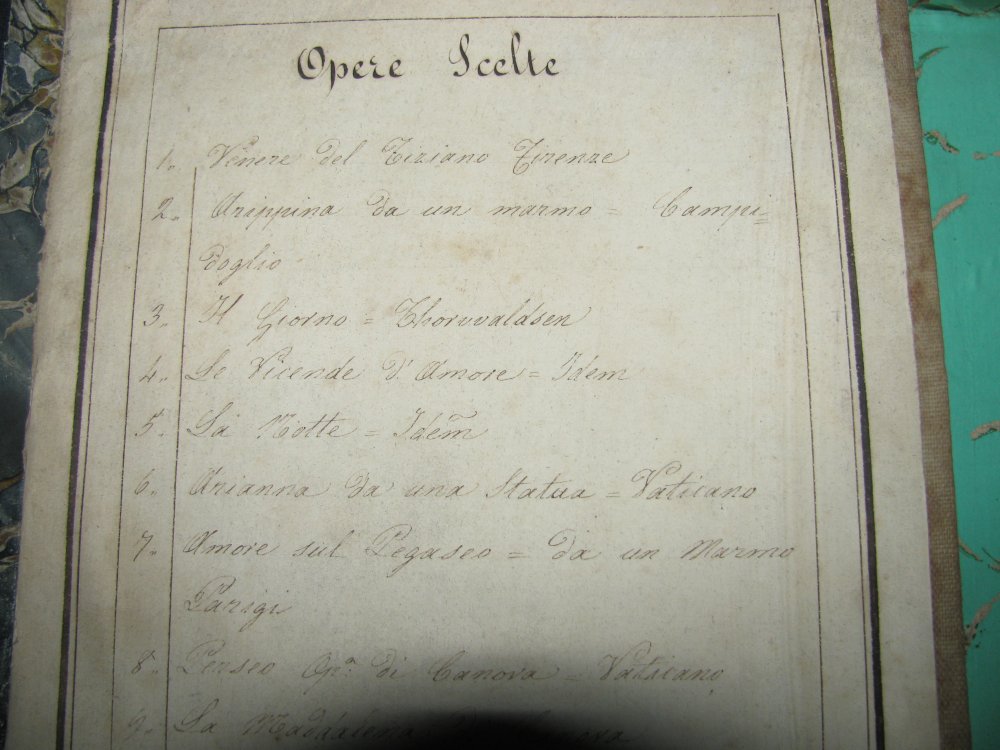 Opere Scelte
1. Venere del Tiziano Firenze
2. Arippina da un marmo = Campi=
doglio
3. Il Giorno = Thorvvaldsen
4. Le Vicende d'Amore = Idem
5. La Notte = Idem
6. Arianna da una Statua = Vaticano
7. Amore sul Pegaseo = da un Marmo
Parigi
8. Perseo Opª di Canova = Vaticano
9. La Maddalena